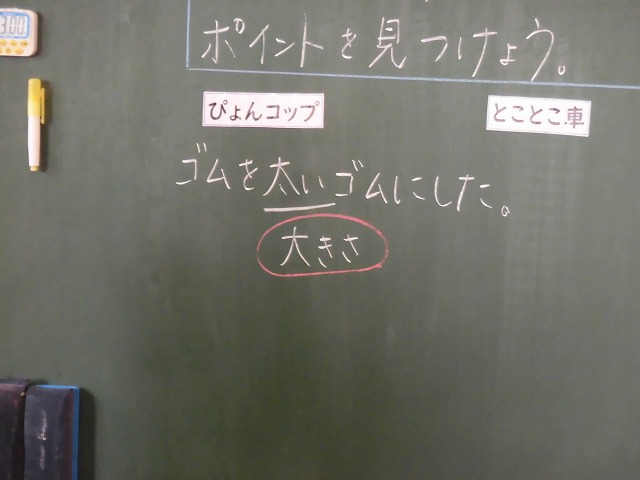 3:00
ポイントを見つけよう。
ぴょんコップ
とことこ車
ゴムを太いゴムにした。
大きさ